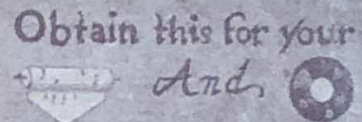 Obtain this for your
And,